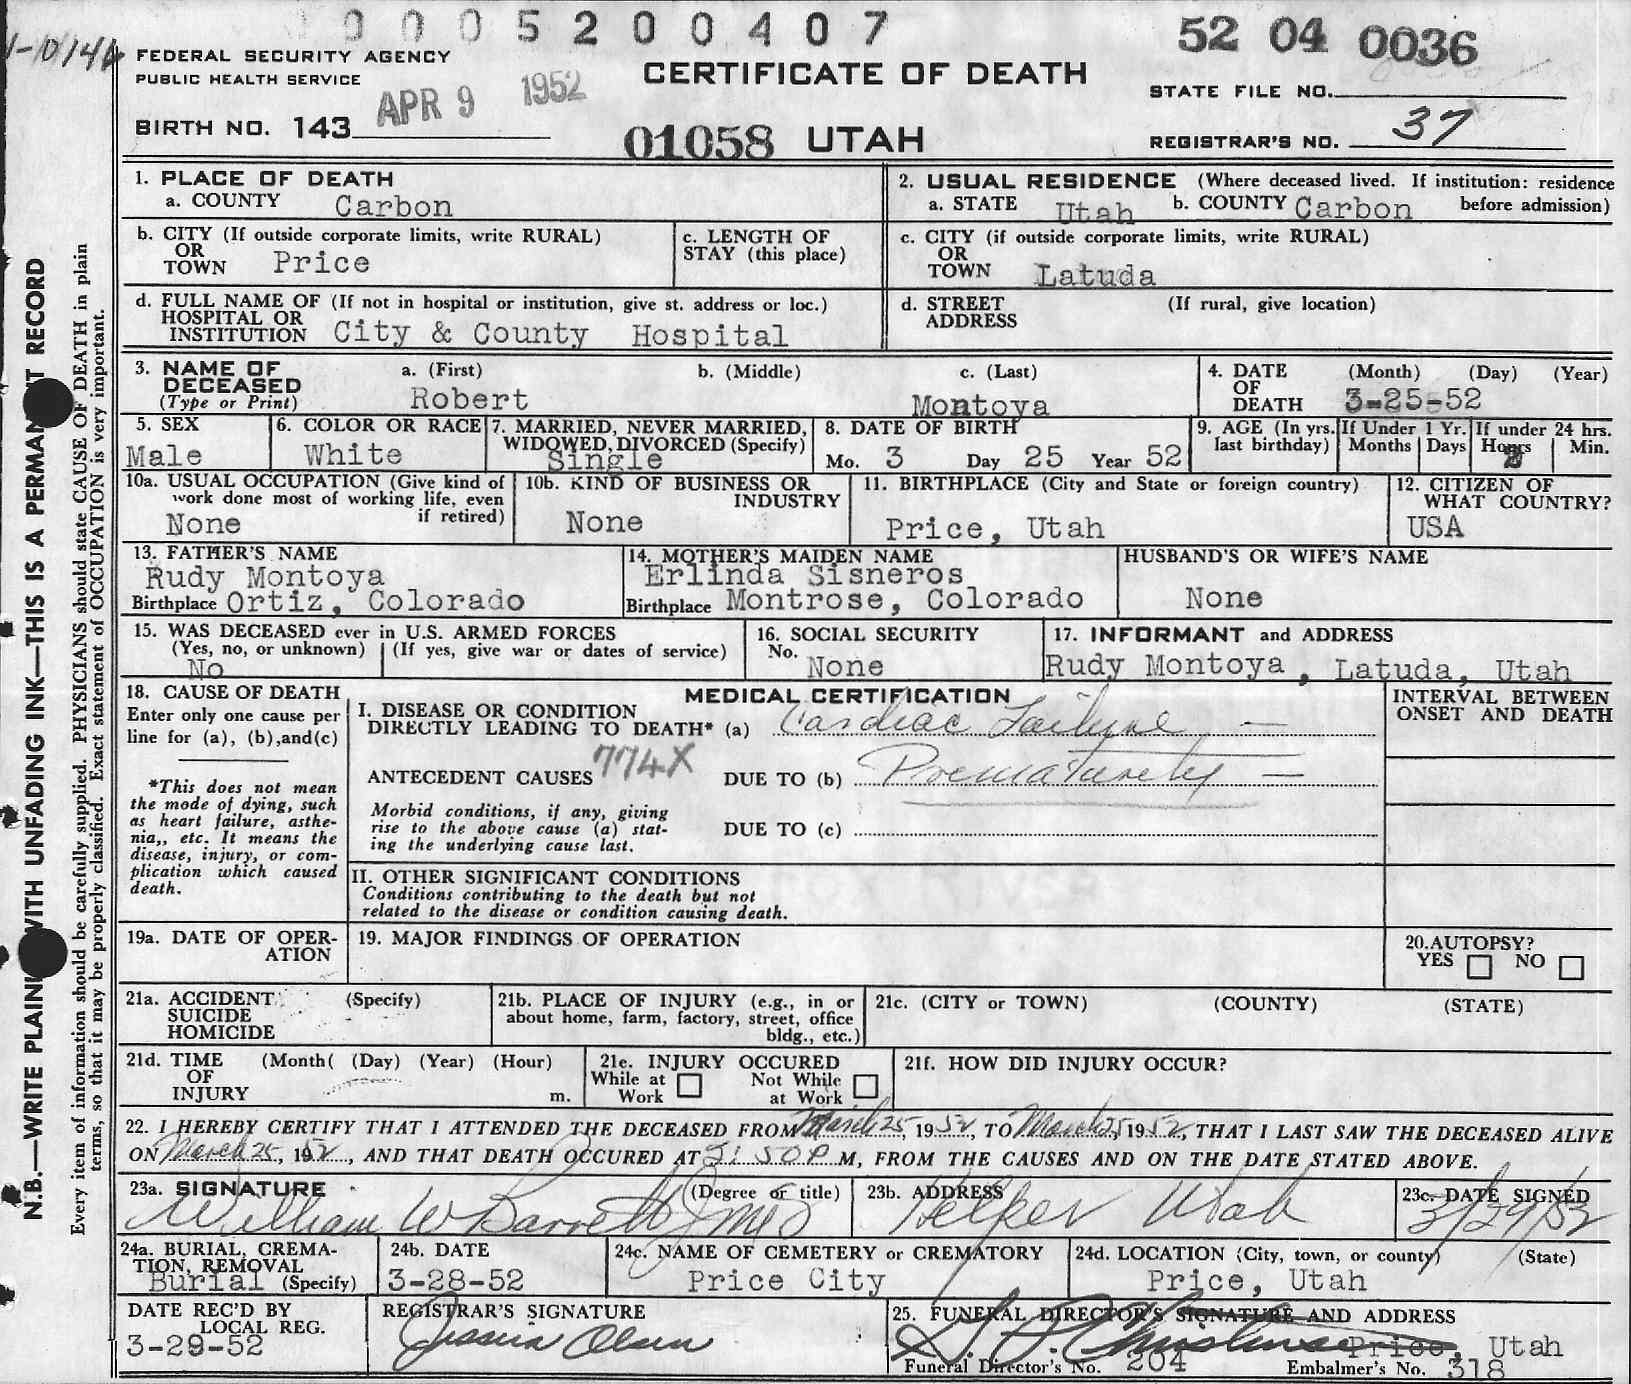 0 0 0 5 2 0 0 4 0 7
52 04 0036
1-10/146
FEDERAL SECURITY AGENCY
PUBLIC HEALTH SERVICE
CERTIFICATE OF DEATH
APR 9 1952
STATE FILE NO.
BIRTH NO. 143
01058 UTAH
REGISTRAR'S NO. 37
1. PLACE OF DEATH
a. COUNTY Carbon
2. USUAL RESIDENCE (Where deceased lived. If institution: residence before admission)
a. STATE Utah b. COUNTY Carbon
b. CITY (If outside corporate limits, write RURAL)
OR
TOWN Price
c. LENGTH OF
STAY (this place)
c. CITY (if outside corporate limits, write RURAL)
OR
TOWN Latuda
d. FULL NAME OF (If not in hospital or institution, give st. address or loc.)
HOSPITAL OR
INSTITUTION City & County Hospital
d. STREET (If rural, give location)
ADDRESS
3. NAME OF
DECEASED
(Type or Print)
a. (First) b. (Middle) c. (Last)
Robert Montoya
4. DATE (Month) (Day) (Year)
OF
DEATH 3-25-52
5. SEX
Male
6. COLOR OR RACE
White
7. MARRIED, NEVER MARRIED,
WIDOWED, DIVORCED (Specify)
Single
8. DATE OF BIRTH
Mo. 3 Day 25 Year 52
9. AGE (In yrs. last birthday)
If Under 1 Yr.
Months Days
If under 24 hrs.
Hours Min.
10a. USUAL OCCUPATION (Give kind of
work done most of working life, even
if retired)
None
10b. KIND OF BUSINESS OR
INDUSTRY
None
11. BIRTHPLACE (City and State or foreign country)
Price, Utah
12. CITIZEN OF
WHAT COUNTRY?
USA
13. FATHER'S NAME
Rudy Montoya
Birthplace Ortiz, Colorado
14. MOTHER'S MAIDEN NAME
Erlinda Sisneros
Birthplace Montrose, Colorado
HUSBAND'S OR WIFE'S NAME
None
15. WAS DECEASED ever in U.S. ARMED FORCES
(Yes, no, or unknown) (If yes, give war or dates of service)
No
16. SOCIAL SECURITY
No. None
17. INFORMANT and ADDRESS
Rudy Montoya, Latuda, Utah
18. CAUSE OF DEATH
Enter only one cause per
line for (a), (b),and(c)
*This does not mean
the mode of dying, such
as heart failure, asthe-
nia,, etc. It means the
disease, injury, or com-
plication which caused
death.
MEDICAL CERTIFICATION
I. DISEASE OR CONDITION
DIRECTLY LEADING TO DEATH* (a) Cardiac Failure —
774X
ANTECEDENT CAUSES DUE TO (b) Prematurety —
Morbid conditions, if any, giving
rise to the above cause (a) stat-
ing the underlying cause last.
DUE TO (c)
INTERVAL BETWEEN
ONSET AND DEATH
II. OTHER SIGNIFICANT CONDITIONS
Conditions contributing to the death but not
related to the disease or condition causing death.
19a. DATE OF OPER-
ATION
19. MAJOR FINDINGS OF OPERATION
20.AUTOPSY?
YES NO
21a. ACCIDENT (Specify)
SUICIDE
HOMICIDE
21b. PLACE OF INJURY (e.g., in or
about home, farm, factory, street, office
bldg., etc.)
21c. (CITY or TOWN) (COUNTY) (STATE)
21d. TIME (Month( (Day) (Year) (Hour)
OF
INJURY m.
21e. INJURY OCCURED
While at Work Not While at Work
21f. HOW DID INJURY OCCUR?
22. I HEREBY CERTIFY THAT I ATTENDED THE DECEASED FROM March 25, 1952, TO March 25, 1952, THAT I LAST SAW THE DECEASED ALIVE
ON March 25, 1952, AND THAT DEATH OCCURED AT 2:50 P M, FROM THE CAUSES AND ON THE DATE STATED ABOVE.
23a. SIGNATURE (Degree or title)
William W Barrett Jr MD
23b. ADDRESS
Helper Utah
23c. DATE SIGNED
3/29/52
24a. BURIAL, CREMA-
TION, REMOVAL
Burial (Specify)
24b. DATE
3-28-52
24c. NAME OF CEMETERY or CREMATORY
Price City
24d. LOCATION (City, town, or county) (State)
Price, Utah
DATE REC'D BY
LOCAL REG.
3-29-52
REGISTRAR'S SIGNATURE
Jessica Olsen
25. FUNERAL DIRECTOR'S SIGNATURE AND ADDRESS
Price, Utah
Funeral Director's No. 204 Embalmer's No. 318
N.B.—WRITE PLAINLY WITH UNFADING INK—THIS IS A PERMANENT RECORD
Every item of information should be carefully supplied. PHYSICIANS should state CAUSE OF DEATH in plain
terms, so that it may be properly classified. Exact statement of OCCUPATION is very important.